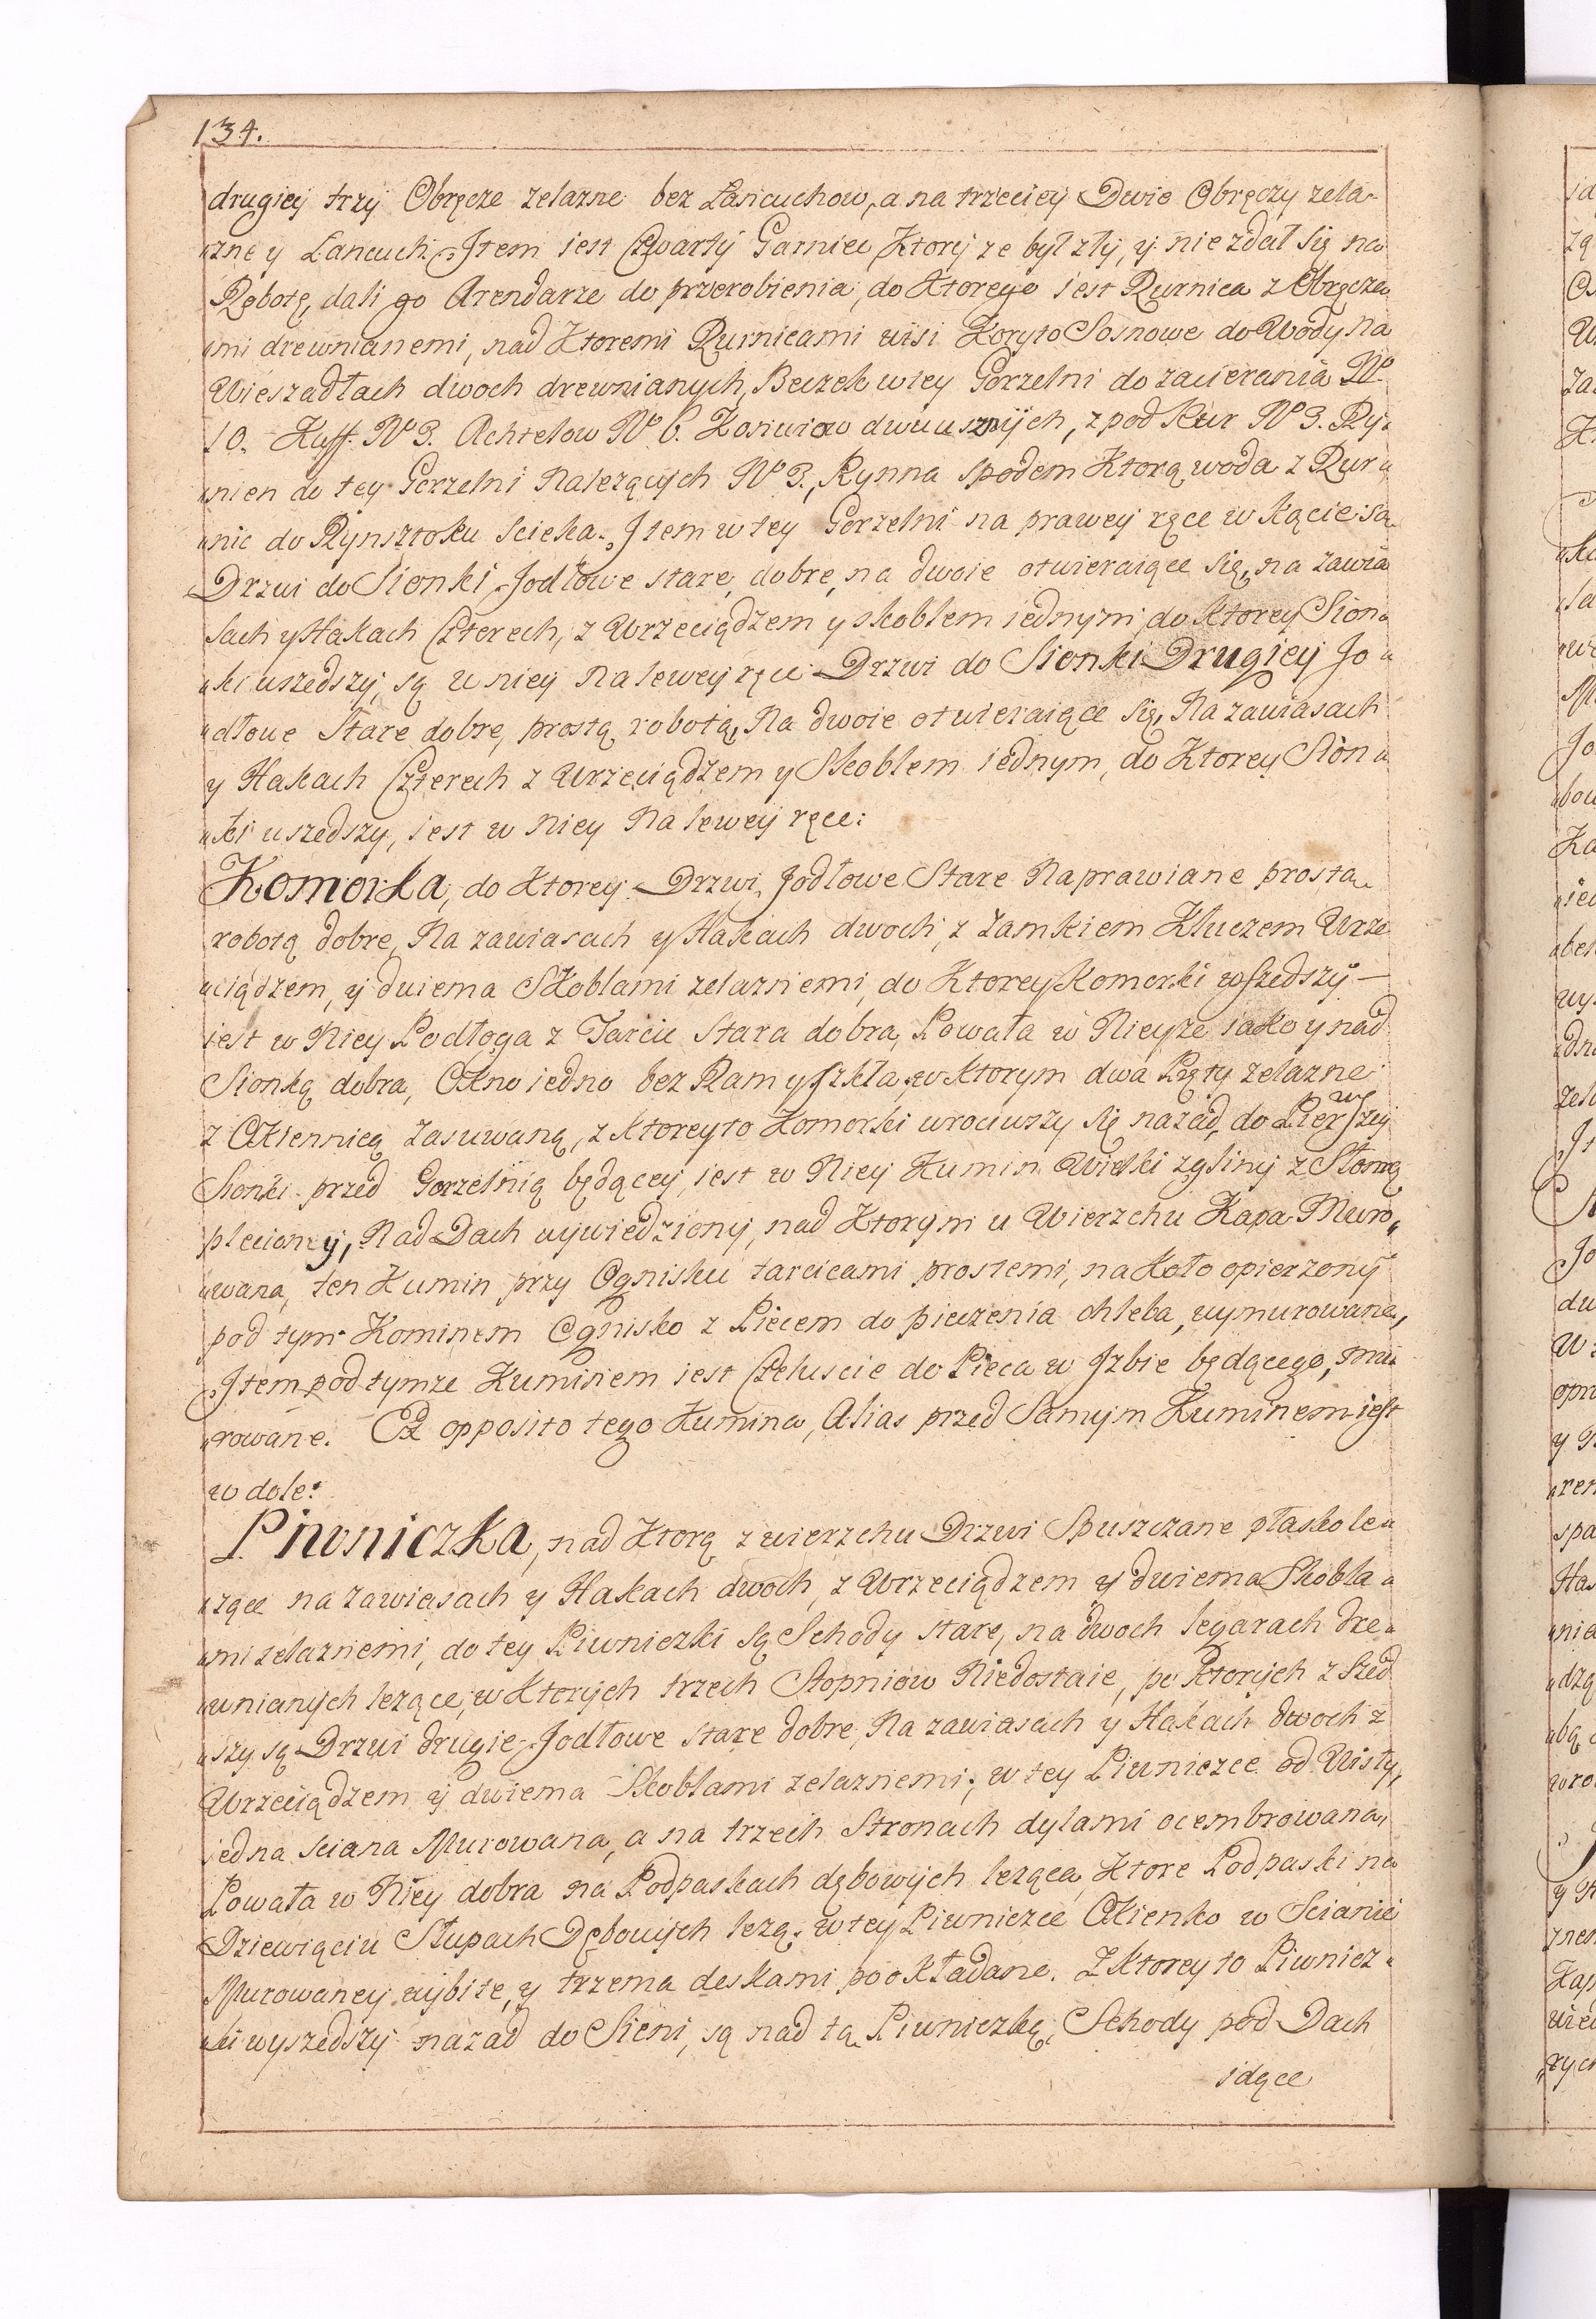 134.
drugiey trzy Obręcze zelazne bez Łancuchow, a na trzeciey Dwie Obręczy zela-
„zne y Lancuch. Item iest Czwarty Garniec Ktory ze był zły, y nie zdał się na
Robotę, dali go Arendarze do przerobienia, do Ktorego iest Rurnica z Obręcza
„mi drewnianemi, nad Ktoremi Rurnicami wisi Koryto Sosnowe do Wody na
Wieszadłach dwoch drewnianych, Beczek w tey Gorzelni do zacierania No
10. Kuff. No 3. Achtelow No 6. Konwiow dwuusznych, z pod Rur No 3. Ry-
„nien do tey Gorzelni Nalezących No 3., Rynna spodem Ktorą woda z Rur„
„nic do Rynsztoku scieka. Item w tey Gorzelni na prawey ręce w kącie są
Drzwi do Sionki Jodłowe stare, dobre, na dwoie otwieraiące się, na zawia
sach y Hakach Czterech, z Wrzeciądzem y skoblem iednym, do ktorey Sion„
„ki wszedszy, są w niey na lewey ręce Drzwi do Sionki Drugiey Jo„
„dłowe Stare dobre, prostą robotą, Na dwoie otwieraiące się, Na zawiasach
y Hakach Czterech z Wrzeciądzem y Skoblem iednym, do Ktorey Sion„
„ki wszedszy, iest w Niey Na lewey ręce:
Komorka, do Ktorey Drzwi Jodłowe Stare Naprawiane prostą
robotą dobre, Na zawiasach y Hakach dwoch, z Zamkiem Kluczem Wrze
„ciądzem, y dwiema Skoblami zelaznemi, do Ktorey Komorki wszedszy —
iest w Niey Podłoga z Tarcic Stara dobra, Powała w Nieyze iako y nad
Sionką dobra, Okno iedno bez Ram y Szkła, w ktorym dwa Pręty zelazne
z Okiennicą zasuwaną, z ktoreyto Komorki wrociwszy się nazad, do Pierwszey
Sionki przed Gorzelnią będącey, iest w Niey Kumin Wielki z gliny z Słomą
plecioney, Nad Dach wywiedziony, nad Ktorym u Wierzchu Kapa Muro„
„wana, ten Kumin przy Ognisku tarcicami prostemi, na Koło opierzony
pod tym Kominem Ognisko z Piecem do pieczenia chleba, wymurowane,
Item pod tymze Kuminem iest Czeluscie do Pieca w Izbie będącego, mu„
„rowane. Ex opposito tego Kumina, Alias przed Samym Kuminem iest
w dole:
Piwniczka, nad Ktorą z wierzchu Drzwi Spuszczane płasko le„
„zące na zawiasach y Hakach dwoch, z Wrzeciądzem y dwiema Skobla„
„mi zelaznemi, do tey Piwniczki są Schody stare, na dwoch legarach dre„
„wnianych lezące, w Ktorych trzech Stopniow Niedostaie, po Ktorych zszed
„szy są Drzwi drugie Jodłowe stare dobre, Na zawiasach y Hakach dwoch z
Wrzeciądzem y dwiema Skoblami zelaznemi, w tey Piwniczce od Wisły,
iedna sciana Murowana, a na trzech Stronach dylami ocembrowana,
Powała w Niey dobra na Podpaskach dębowych leząca, Ktore Podpaski na
Dziewięciu Słupach Dębowych lezą: w tey Piwniczce Okienko w Scianie
Murowaney wybite, y trzema deskami pookładane. Z Ktorey to Piwnicz„
„ki wyszedszy nazad do Sieni, są nad tą Piwniczką, Schody pod Dach
idące